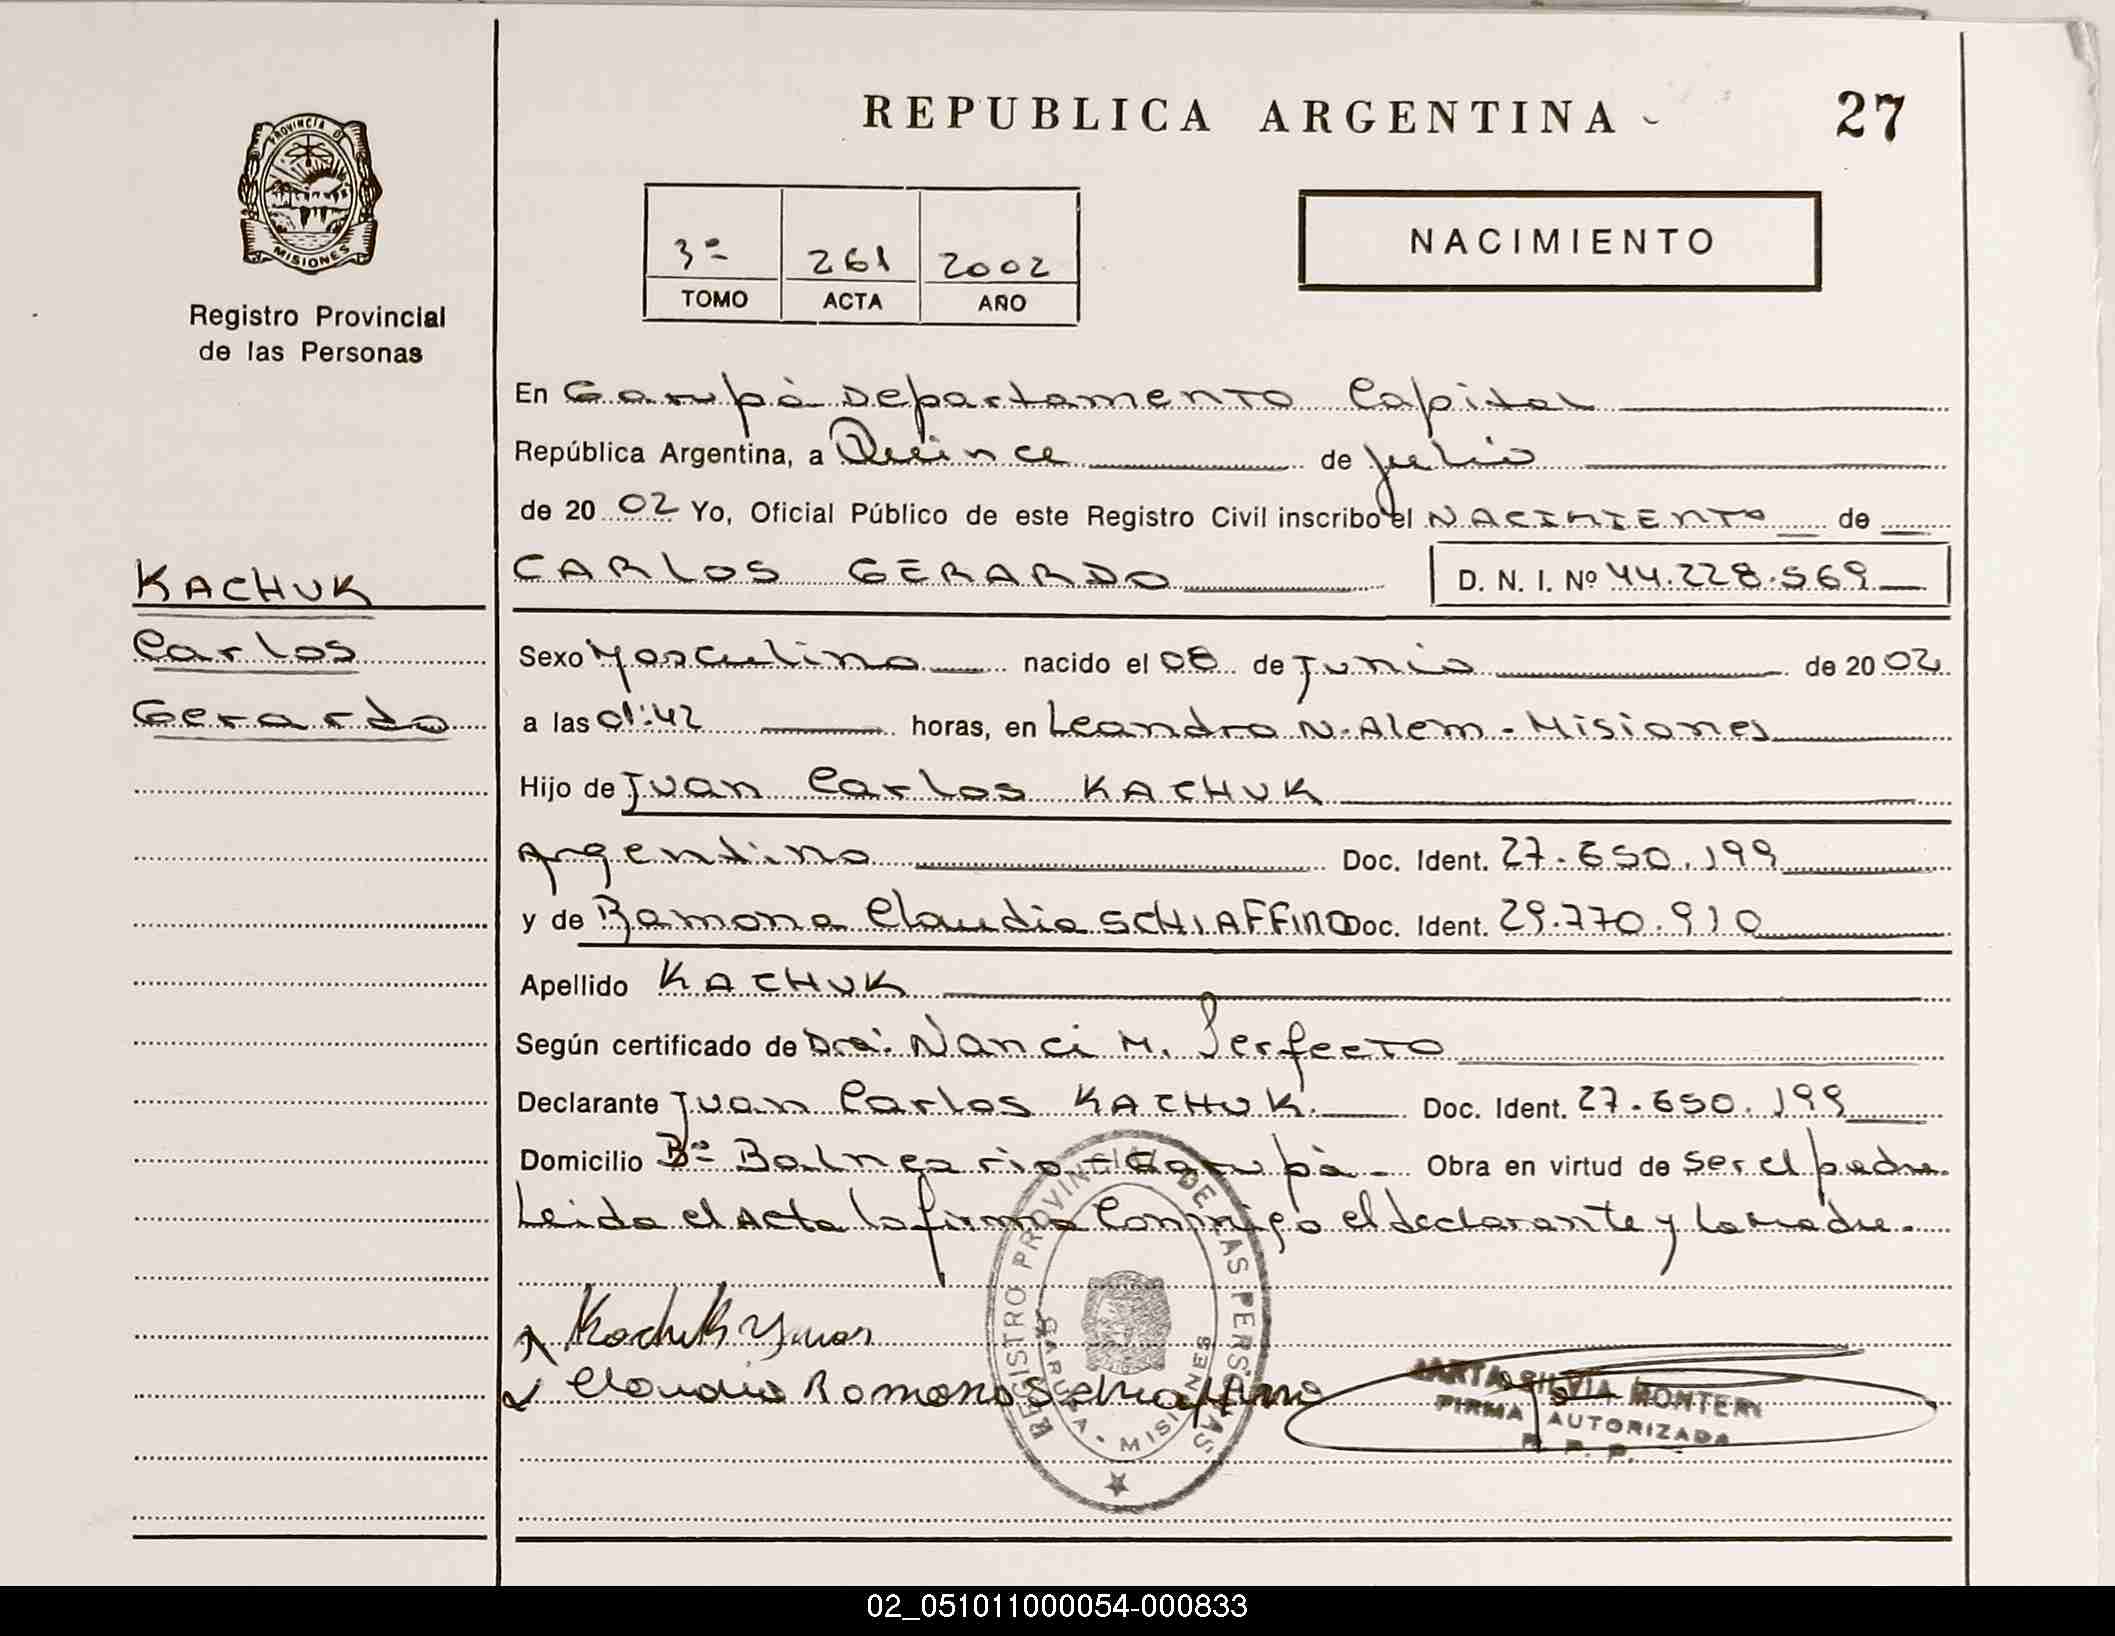 REPUBLICA ARGENTINA
27
PROVINCIA DE
MISIONES
Registro Provincial
de las Personas
3º 261 2002
TOMO ACTA AÑO
NACIMIENTO
En Garupá Departamento Capital
República Argentina, a Quince de Julio
de 20 02 Yo, Oficial Público de este Registro Civil inscribo el NACIMIENTO de
KACHUK
Carlos
Gerardo
CARLOS GERARDO D. N. I. Nº 44.228.569
Sexo Masculino nacido el 08 de Junio de 20 02
a las 01:42 horas, en Leandro N. Alem - Misiones
Hijo de Juan Carlos KACHUK
Argentino Doc. Ident. 27.650.199
y de Ramona Claudia SCHIAFFINO Doc. Ident. 29.770.910
Apellido KACHUK
Según certificado de Dra. Nanci M. Perfecto
Declarante Juan Carlos KACHUK Doc. Ident. 27.650.199
Domicilio Bº Balneario - Garupá - Obra en virtud de ser el padre.
Leida el Acta la firma Conmigo el declarante y la madre.
Kachuk Juan
Claudia Ramona Schiaffino
REGISTRO PROVINCIAL DE LAS PERSONAS
GARUPA - MISIONES
MARTA SILVIA
FIRMA AUTORIZADA
R. P. P.
02_051011000054-000833